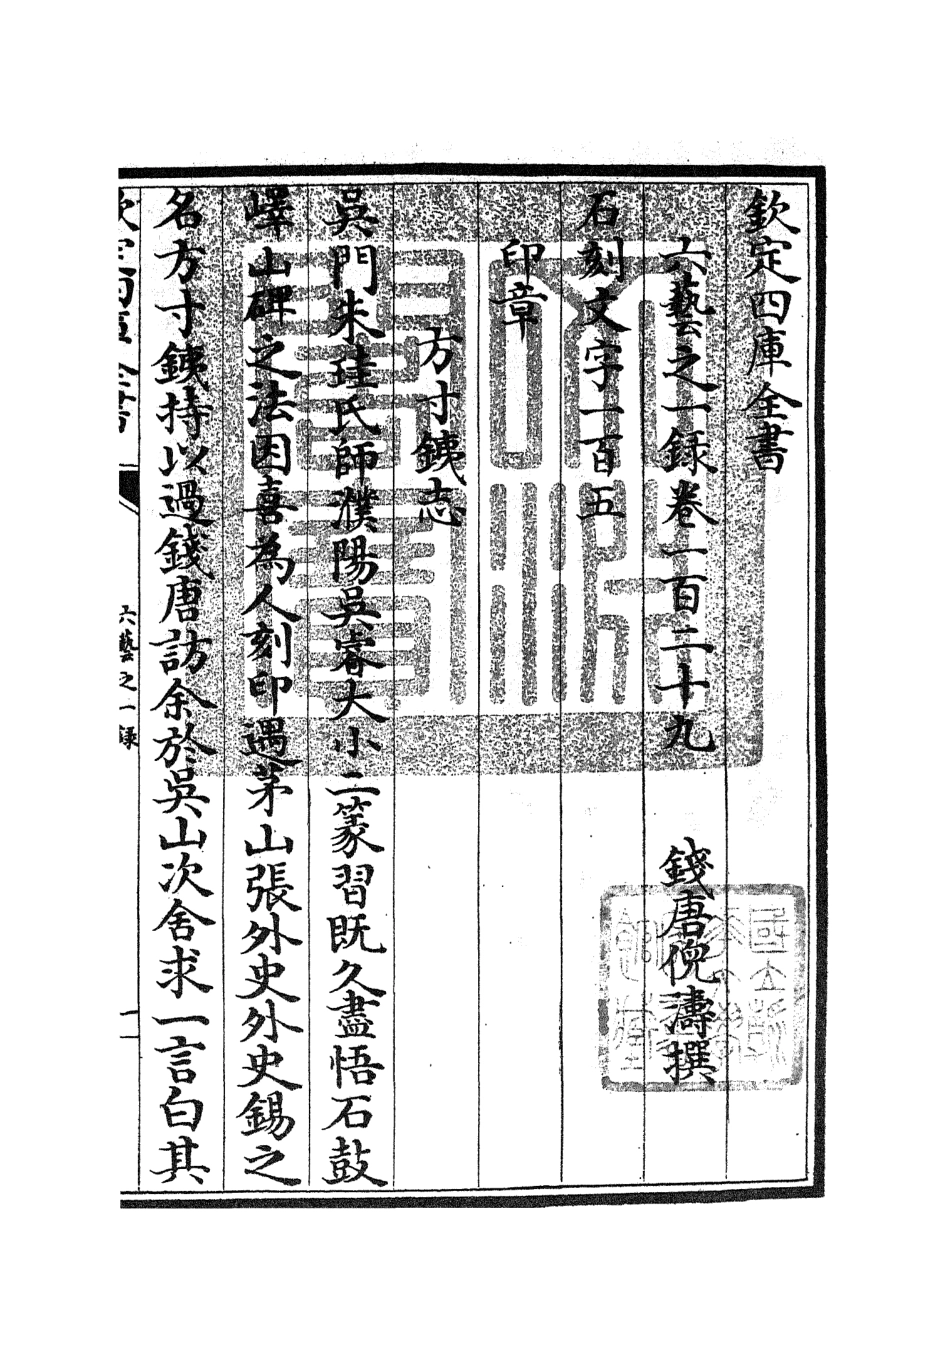 欽定四庫全書
六藝之一録卷一百二十九
錢唐倪濤撰
石刻文字一百五
印章
方寸銕志
吳門朱珪氏師濮陽吳睿大小二篆習既久盡悟石鼓
嶧山碑之法因喜為人刻印遇茅山張外史外史錫之
名方寸銕持以過錢唐訪余於吳山次舍求一言白其
六藝之一録
一